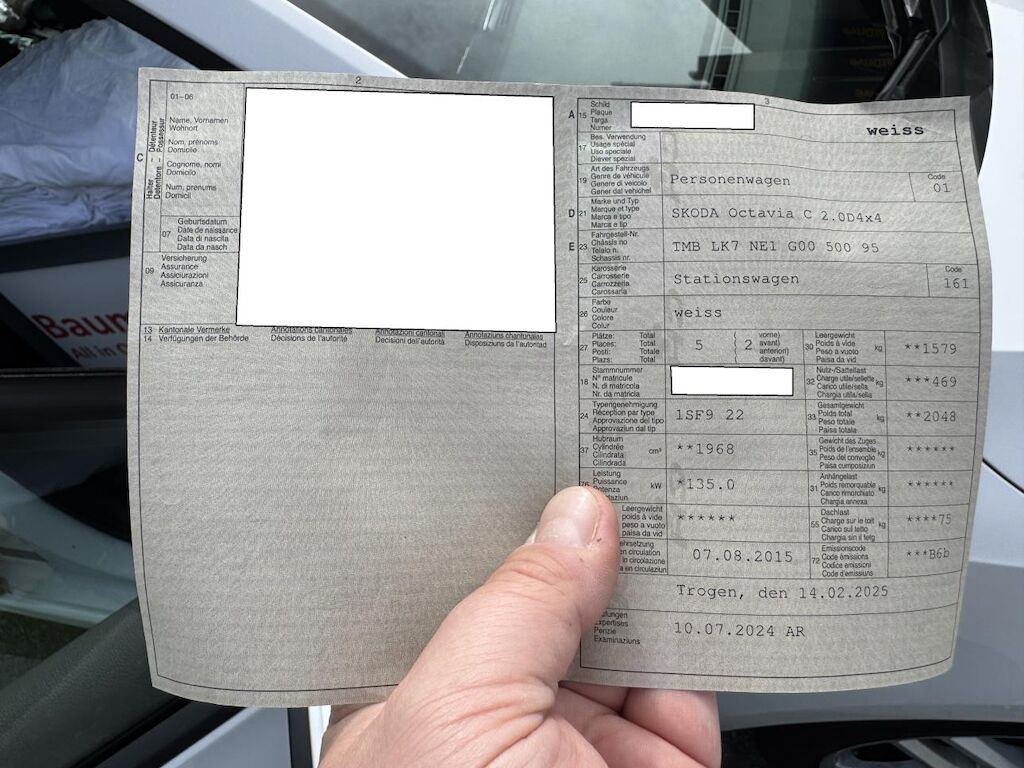 2
01–06
Name, Vornamen
Wohnort
Nom, prénoms
Domicile
Cognome, nomi
Domicilio
Num, prenums
Domicil
C
Halter – Détenteur
Detentore – Possessur
07
Geburtsdatum
Date de naissance
Data di nascita
Data da nasch
09
Versicherung
Assurance
Assicurazioni
Assicuranza
13 Kantonale Vermerke Annotations cantonales Annotazioni cantonali Annotaziuns chantunalas
14 Verfügungen der Behörde Décisions de l'autorité Decisioni dell'autorità Disposiziuns da l'autoritad
3
A
15
Schild
Plaque
Targa
Numer
weiss
17
Bes. Verwendung
Usage spécial
Uso speciale
Diever spezial
19
Art des Fahrzeugs
Genre de véhicule
Genere di veicolo
Gener dal vehichel
Personenwagen
Code
01
D
21
Marke und Typ
Marque et type
Marca e tipo
Marca e tip
SKODA Octavia C 2.0D4x4
E
23
Fahrgestell-Nr.
Châssis no
Telaio n.
Schassis nr.
TMB LK7 NE1 G00 500 95
25
Karosserie
Carrosserie
Carrozzeria
Carossaria
Stationswagen
Code
161
26
Farbe
Couleur
Colore
Colur
weiss
27
Plätze: Total
Places: Total
Posti: Totale
Plazs: Total
5
( 2 vorne)
avant)
anteriori)
davant)
30
Leergewicht
Poids à vide
Peso a vuoto
Paisa da vid
kg
**1579
18
Stammnummer
N° matricule
N. di matricola
Nr. da matricla
32
Nutz-/Sattellast
Charge utile/sellette
Carico utile/sella
Chargia utila/sella
kg
***469
24
Typengenehmigung
Réception par type
Approvazione del tipo
Approvaziun dal tip
1SF9 22
33
Gesamtgewicht
Poids total
Peso totale
Paisa totala
kg
**2048
37
Hubraum
Cylindrée
Cilindrata
Cilindrada
cm³
**1968
35
Gewicht des Zuges
Poids de l'ensemble
Peso del convoglio
Paisa cumposiziun
kg
******
76
Leistung
Puissance
Potenza
kW
*135.0
31
Anhängelast
Poids remorquable
Carico rimorchiato
Chargia annexa
kg
******
Leergewicht
poids à vide
peso a vuoto
paisa da vid
******
55
Dachlast
Charge sur le toit
Carico sul tetto
Chargia sin il tetg
kg
****75
en circulation
in circolazione
en circulaziun
07.08.2015
72
Emissionscode
Code émissions
Codice emissioni
Code d'emissiuns
***B6b
Trogen, den 14.02.2025
Expertises
Perizie
Examinaziuns
10.07.2024 AR
Baum
All in